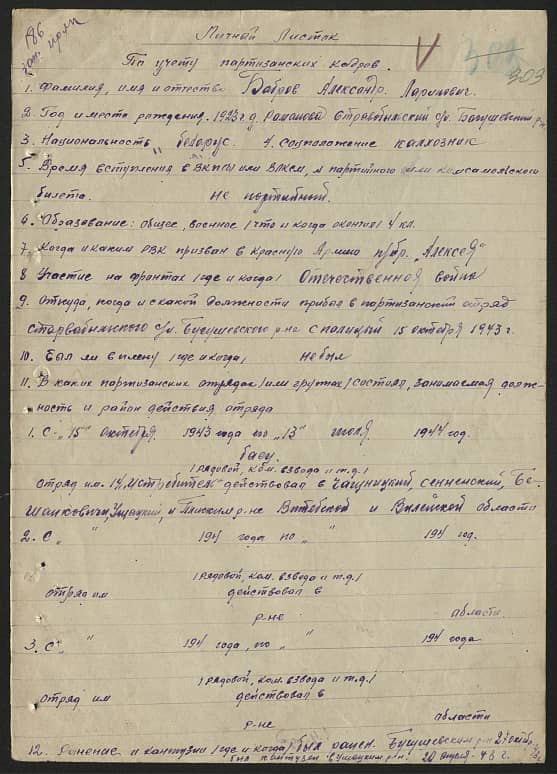 186
Личный Листок
303
По учету партизанских кадров.
1. Фамилия, имя и отчество Бобров Александр Ларионович.
2. Год и место рождения. 1923 г. д. Рашаново с/у. Богушевский р-н
3. Национальность белорус. 4. Соцположение колхозник
5. Время вступления в ВКП(б) или ВЛКСМ, № партийного или комсомольского
билета. не партийный.
6. Образование: общее, военное (что и когда окончил) 4 кл.
7. Когда и каким РВК призван в Красную Армию п/бр. „Алексея"
8 Участие на фронтах (где и когда) Отечественная война
9. Откуда, когда и с какой должности прибыл в партизанский отряд
с/у. Богушевского р-на с полиций 15 октября 1943 г.
10. Был ли в плену (где и когда) не был
11. В каких партизанских отрядах (или группах) состоял, занимаемая долж-
ность и район действия отряда
1. С „15" октября 1943 года по „13" июля 1944 год.
боец
(рядовой, ком. взвода и т.д.)
Отряд им. 14, действовал в Чашницкий, Сенненский, Бе-
шенковичи, Ушацкий, и Плиским р-не Витебской и Вилейской области
2. С „ " 194 года по „ " 194 год.
(рядовой, ком. взвода и т.д.)
отряд им действовал в
р-не области.
3. С „ " 194 года, по „ " 194 года
(рядовой, ком. взвода и т.д.)
отряд им действовал в
р-не области
12. Ранение и контузии (где и когда) был ранен. Богушевским р-н 27
был контузен в Ушацким р-н. 20 апреля - 43 г.